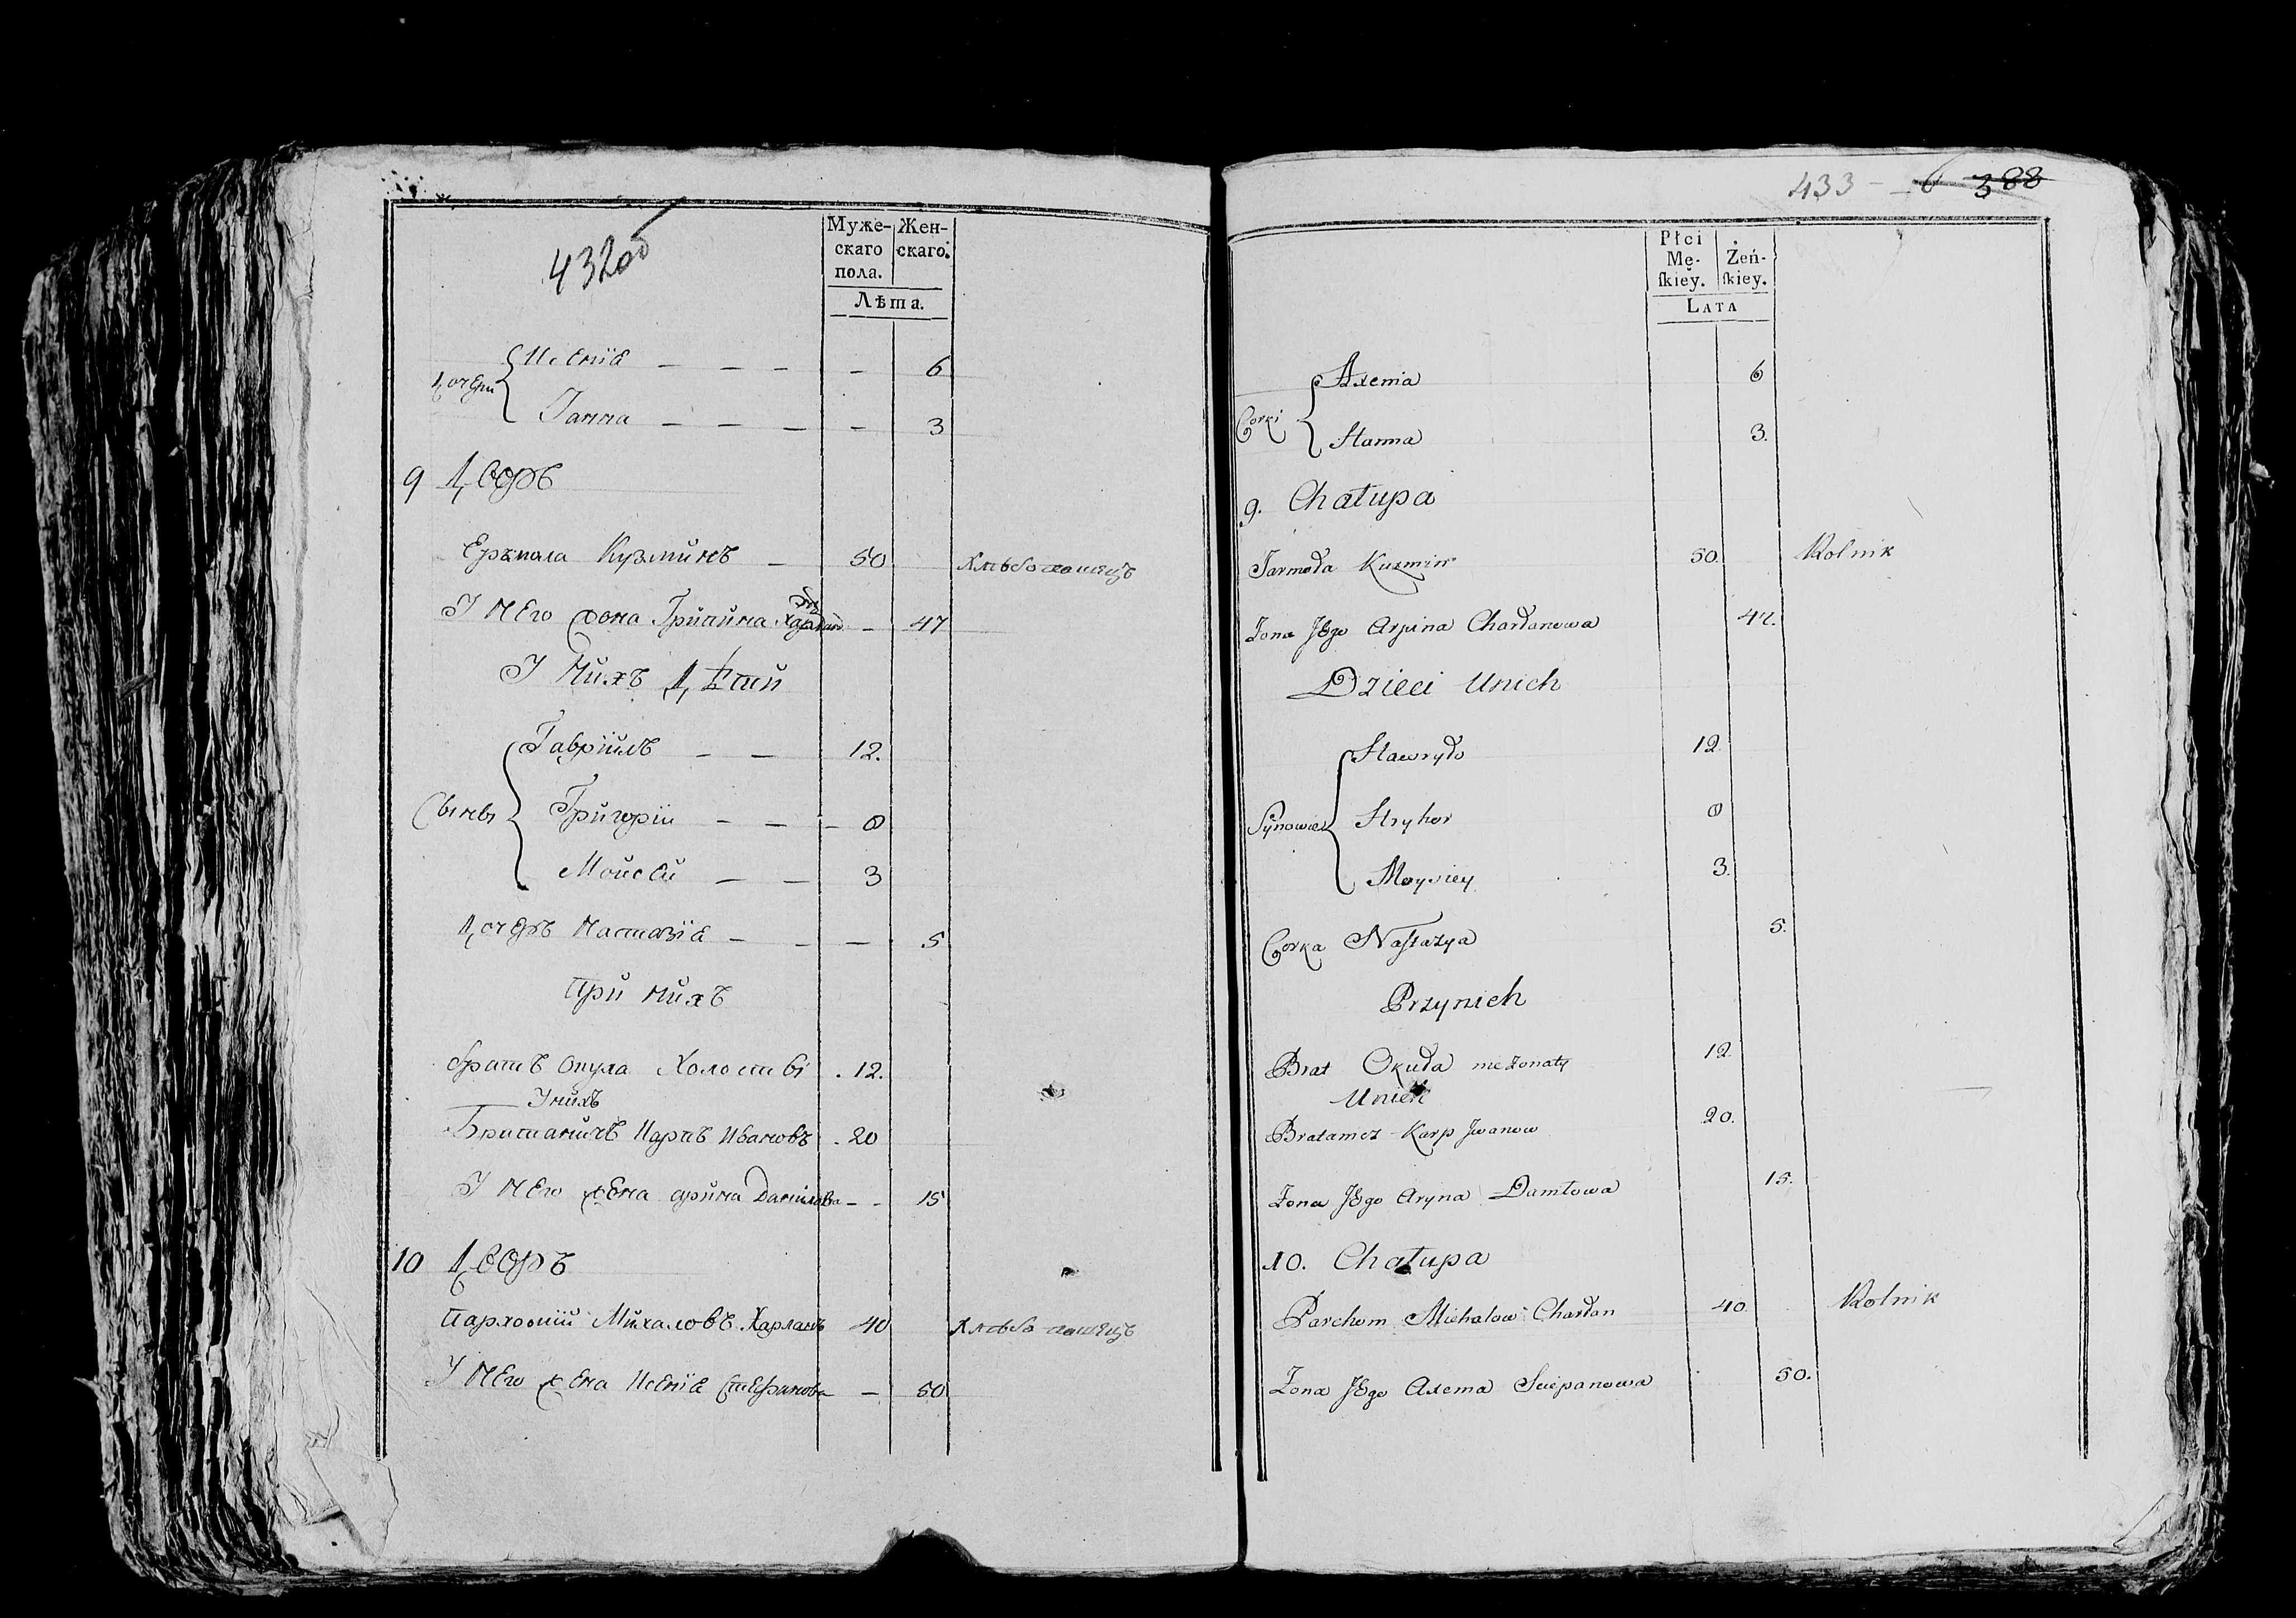 432об
Муже-
скаго
пола.
Жен-
скаго.
Лѣта.
Дочери
Ксенія — — — — 6
Ганна — — — — 3
9 Дворъ
Ермола Кузминъ — 50 хлѣбопашецъ
У него жона Грипина — 47
У нихъ Дѣти
Сыны
Гавріилъ — — 12.
Григорій — — — 8
Мойсей — — 3
Дочеръ Настазіа — — — 5
При нихъ
братъ Окула Холостый . 12.
Унихъ
Братаничъ Карпъ Ивановъ . 20
У него жена арина Данилова — - 15
10 Дворъ
Пархомій Михаловъ Харланъ 40 хлѣбопашецъ
У него жена Ксеніа Стефанова — 50
433 — 6 388
Płci
Mę-
ſkiey.
Żeń-
ſkiey.
LATA
Corki
Axenia 6
Hanna 3.
9. Chałupa
Jarmoła Kuzmin 50. Rolnik
Zona JEgo Arpina Charłanowa 47.
Dzieci Unich
Synowie
Hawryło 12
Hryhor 8
Moysiey 3.
Corka Naſtazya 5.
Przynich
Brat Okuła niezonaty 12
Unich
Bratanicz Karp Jwanow 20.
Zona JEgo Aryna Daniłowa 15.
10. Chałupa
Parchom Michalow Charłan 40. Rolnik
Zona JEgo Axenia Sciepanowa 50.